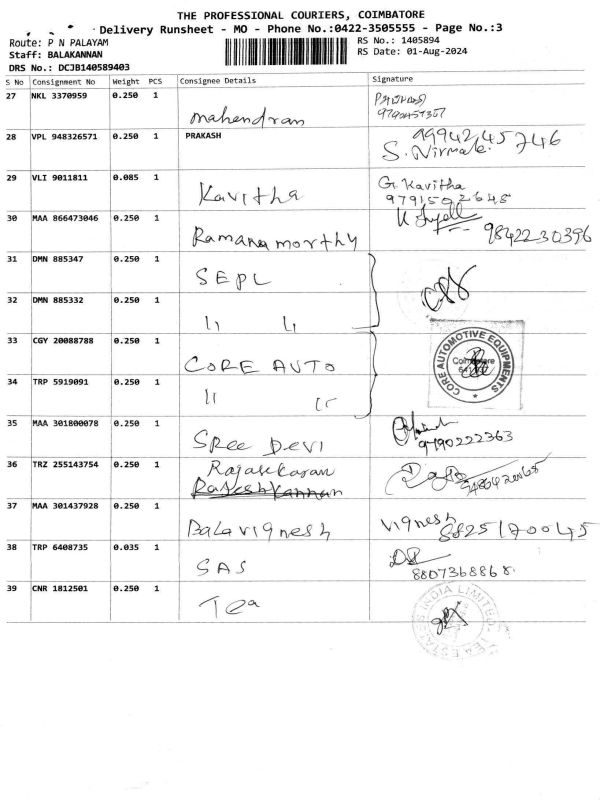 THE PROFESSIONAL COURIERS, COIMBATORE
Delivery Runsheet - MO - Phone No.:0422-3505555 - Page No.:3
Route: P N PALAYAM
RS No.: 1405894
Staff: BALAKANNAN
RS Date: 01-Aug-2024
DRS No.: DCJB140589403
S No Consignment No Weight PCS Consignee Details Signature
27 NKL 3370959 0.250 1 Mahendran
28 VPL 948326571 0.250 1 PRAKASH
S. Nirmala
29 VLI 9011811 0.085 1 Kavitha G. Kavitha
9791502648
30 MAA 866473046 0.250 1 Ramana morthy 9842230396
31 DMN 885347 0.250 1 SEPL
32 DMN 885332 0.250 1 11 11
33 CGY 20088788 0.250 1 CORE AUTO
CORE AUTOMOTIVE EQUIPMENTS
Coimbatore
34 TRP 5919091 0.250 1 11 11
35 MAA 301800078 0.250 1 SREE DEVI
9790222363
36 TRZ 255143754 0.250 1 Rajasekaran
Rajeshkannan
37 MAA 301437928 0.250 1 Balavignesh Vignesh
8825170045
38 TRP 6408735 0.035 1 SAS
8807368868
39 CNR 1812501 0.250 1 Tea
TEA ESTATES INDIA LIMITED